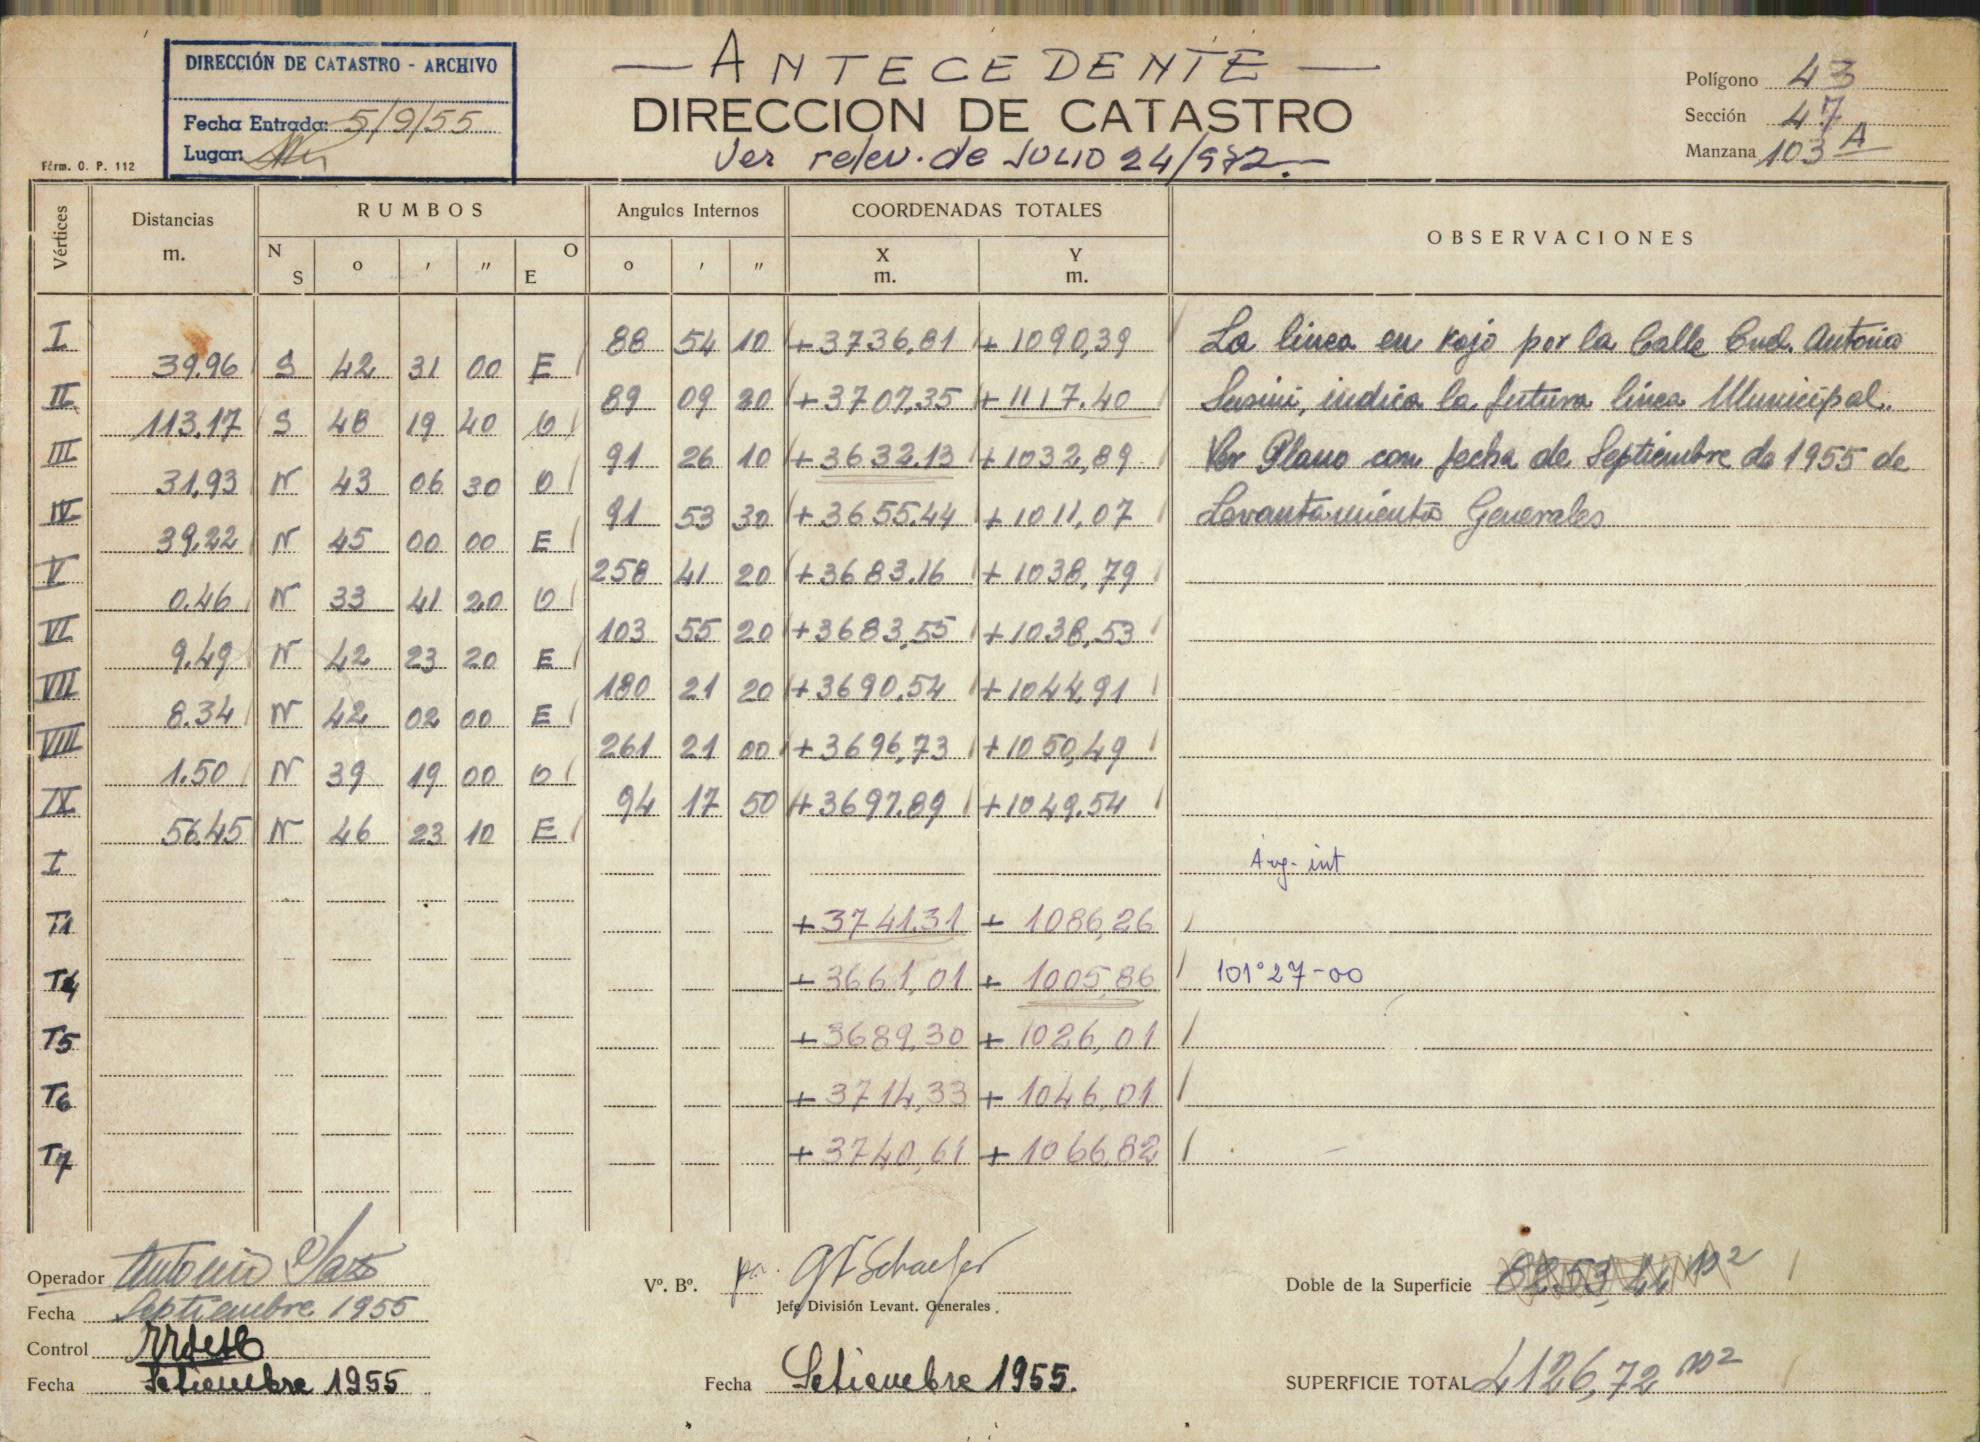 — ANTECEDENTE —
DIRECCIÓN DE CATASTRO - ARCHIVO
Fecha Entrada: 5/9/55
Lugar:
Fórm. O. P. 112
DIRECCION DE CATASTRO
Ver relev. de JULIO 24/972.—
Polígono 43
Sección 47
Manzana 103 A
Vértices Distancias m. RUMBOS Angulos Internos COORDENADAS TOTALES OBSERVACIONES
N S o ' " O E o ' " X m. Y m.
I 88 54 10 +3736,81 +1090,39 La linea en rojo por la Calle Cnel. Antonio
39.96 S 42 31 00 E
II 89 09 20 +3707,35 +1117.40 Susini, indica la futura linea Municipal.
113.17 S 48 19 40 O
III 91 26 10 +3632.13 +1032,89 Ver Plano com fecha de Septiembre de 1955 de
31,93 N 43 06 30 O
IV 91 53 30 +3655.44 +1011,07 Levantamientos Generales
39,22 N 45 00 00 E
V 258 41 20 +3683.16 +1038,79
0.46 N 33 41 20 O
VI 103 55 20 +3683,55 +1038,53
9.49 N 42 23 20 E
VII 180 21 20 +3690.54 +1044,91
8.34 N 42 02 00 E
VIII 261 21 00 +3696,73 +1050,49
1.50 N 39 19 00 O
IX 94 17 50 +3697.89 +1049.54
56.45 N 46 23 10 E
I Ang. int
T1 +3741.31 + 1086,26
T4 +3661,01 + 1005,86 101°27-00
T5 +3689,30 + 1026,01
T6 +3714,33 + 1046,01
T7 +3740,61 + 1066,82
Operador Antonio
Fecha Septiembre 1955
Control
Fecha Setiembre 1955
Vº. Bº. pa. Schaefer
Jefe División Levant. Generales.
Fecha Setiembre 1955.
Doble de la Superficie 8253,44 m2
SUPERFICIE TOTAL 4126,72 m2